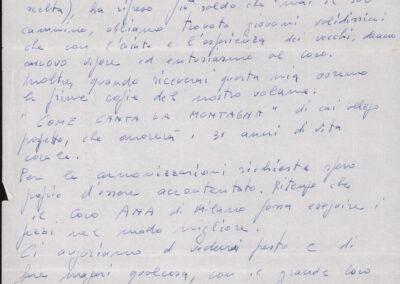 scelta), ha ripreso più saldo che mai il suo
cammino, abbiamo trovato giovani validissimi
che con l'aiuto e l'esperienza dei vecchi, danno
nuovo vigore ed entusiasmo al coro.
Inoltre, quando riceverai questa mia avremo
le prime copie del nostro volume:
"COME CANTA LA MONTAGNA" di cui allego
che onorerà i 31 anni di vita
corale.
Per le armonizzazioni richieste spero
proprio d'essere accontentato. Ritengo che
il Coro ANA di Milano possa eseguire i
pezzi nel modo migliore.
Ci auguriamo di vederci presto e di
fare magari qualcosa, con il grande Coro